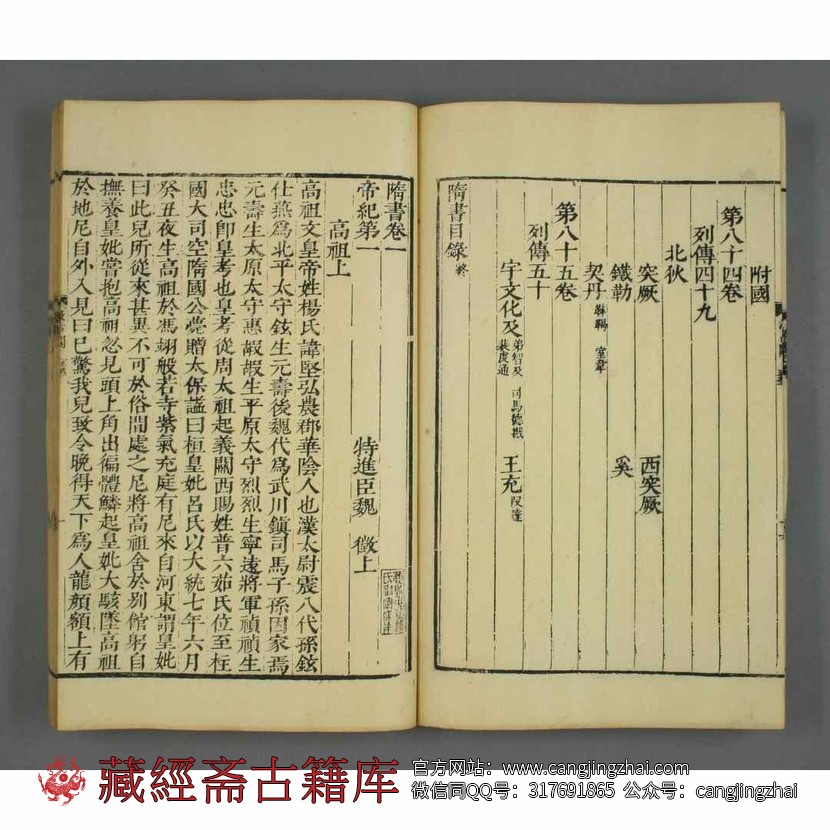 附國
第八十四卷
列傳四十九
北狄
突厥 西突厥
鐵勒 奚
契丹 靺鞨 室韋
第八十五卷
列傳五十
宇文化及 弟智及 司馬德戡 裴虔通 王充 段達
隋書目錄 終
隋書卷一
帝紀第一 特進臣魏 徵上
高祖上
高祖文皇帝姓楊氏諱堅弘農郡華陰人也漢太尉震八代孫鉉
仕燕爲北平太守鉉生元壽後魏代爲武川鎮司馬子孫因家焉
元壽生太原太守惠嘏嘏生平原太守烈烈生寧遠將軍禎禎生
忠忠卽皇考也皇考從周太祖起義關西賜姓普六茹氏位至柱
國大司空隋國公薨贈太保謚曰桓皇妣呂氏以大統七年六月
癸丑夜生高祖於馮翊般若寺紫氣充庭有尼來自河東謂皇妣
曰此兒所從來甚異不可於俗間處之尼將高祖舍於別館躬自
撫養皇妣嘗抱高祖忽見頭上角出徧體鱗起皇妣大駭墜高祖
於地尼自外入見曰已驚我兒致令晚得天下爲人龍頷額上有
藏經斋古籍库
官方网站：www.cangjingzhai.com
微信同QQ号：317691865 公众号：cangjingzhai